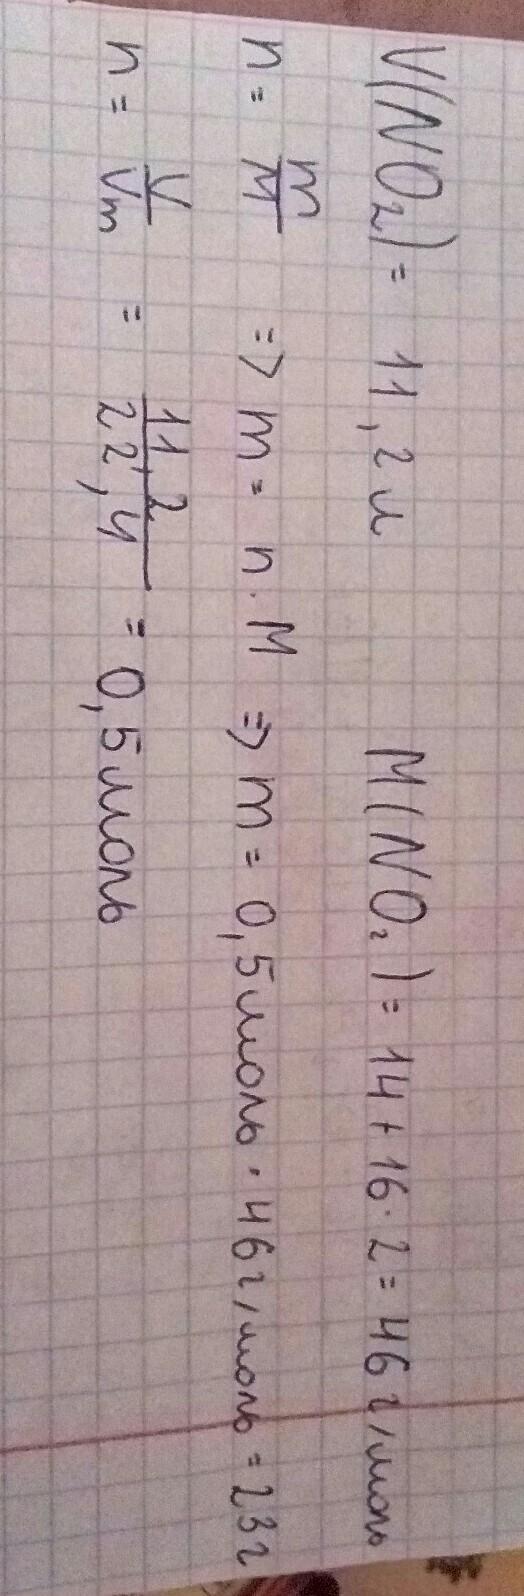 V(NO₂) = 11,2 л M(NO₂) = 14 + 16 · 2 = 46 г/моль
n = m/M => m = n · M => m = 0,5 моль · 46 г/моль = 23 г
n = V/Vm = 11,2/22,4 = 0,5 моль